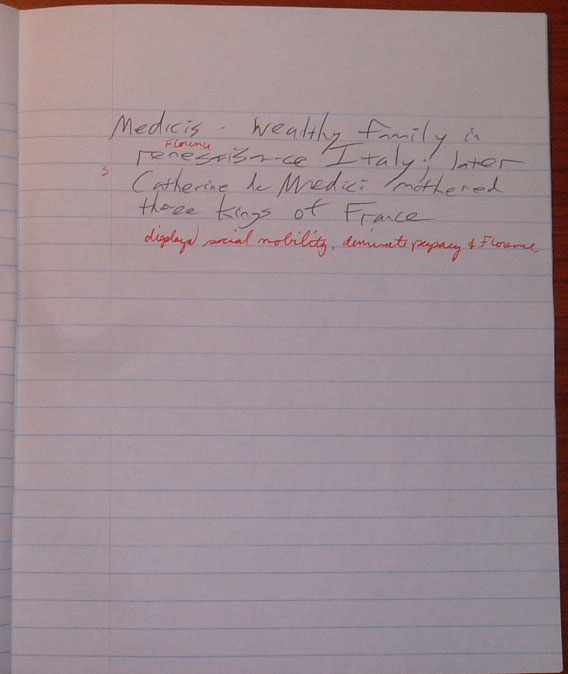 Medicis - Wealthy family in
Florence
renessisance Italy; later
3
Catherine de Medici mothered
three kings of France
displayed social mobility, dominate papacy & Florence